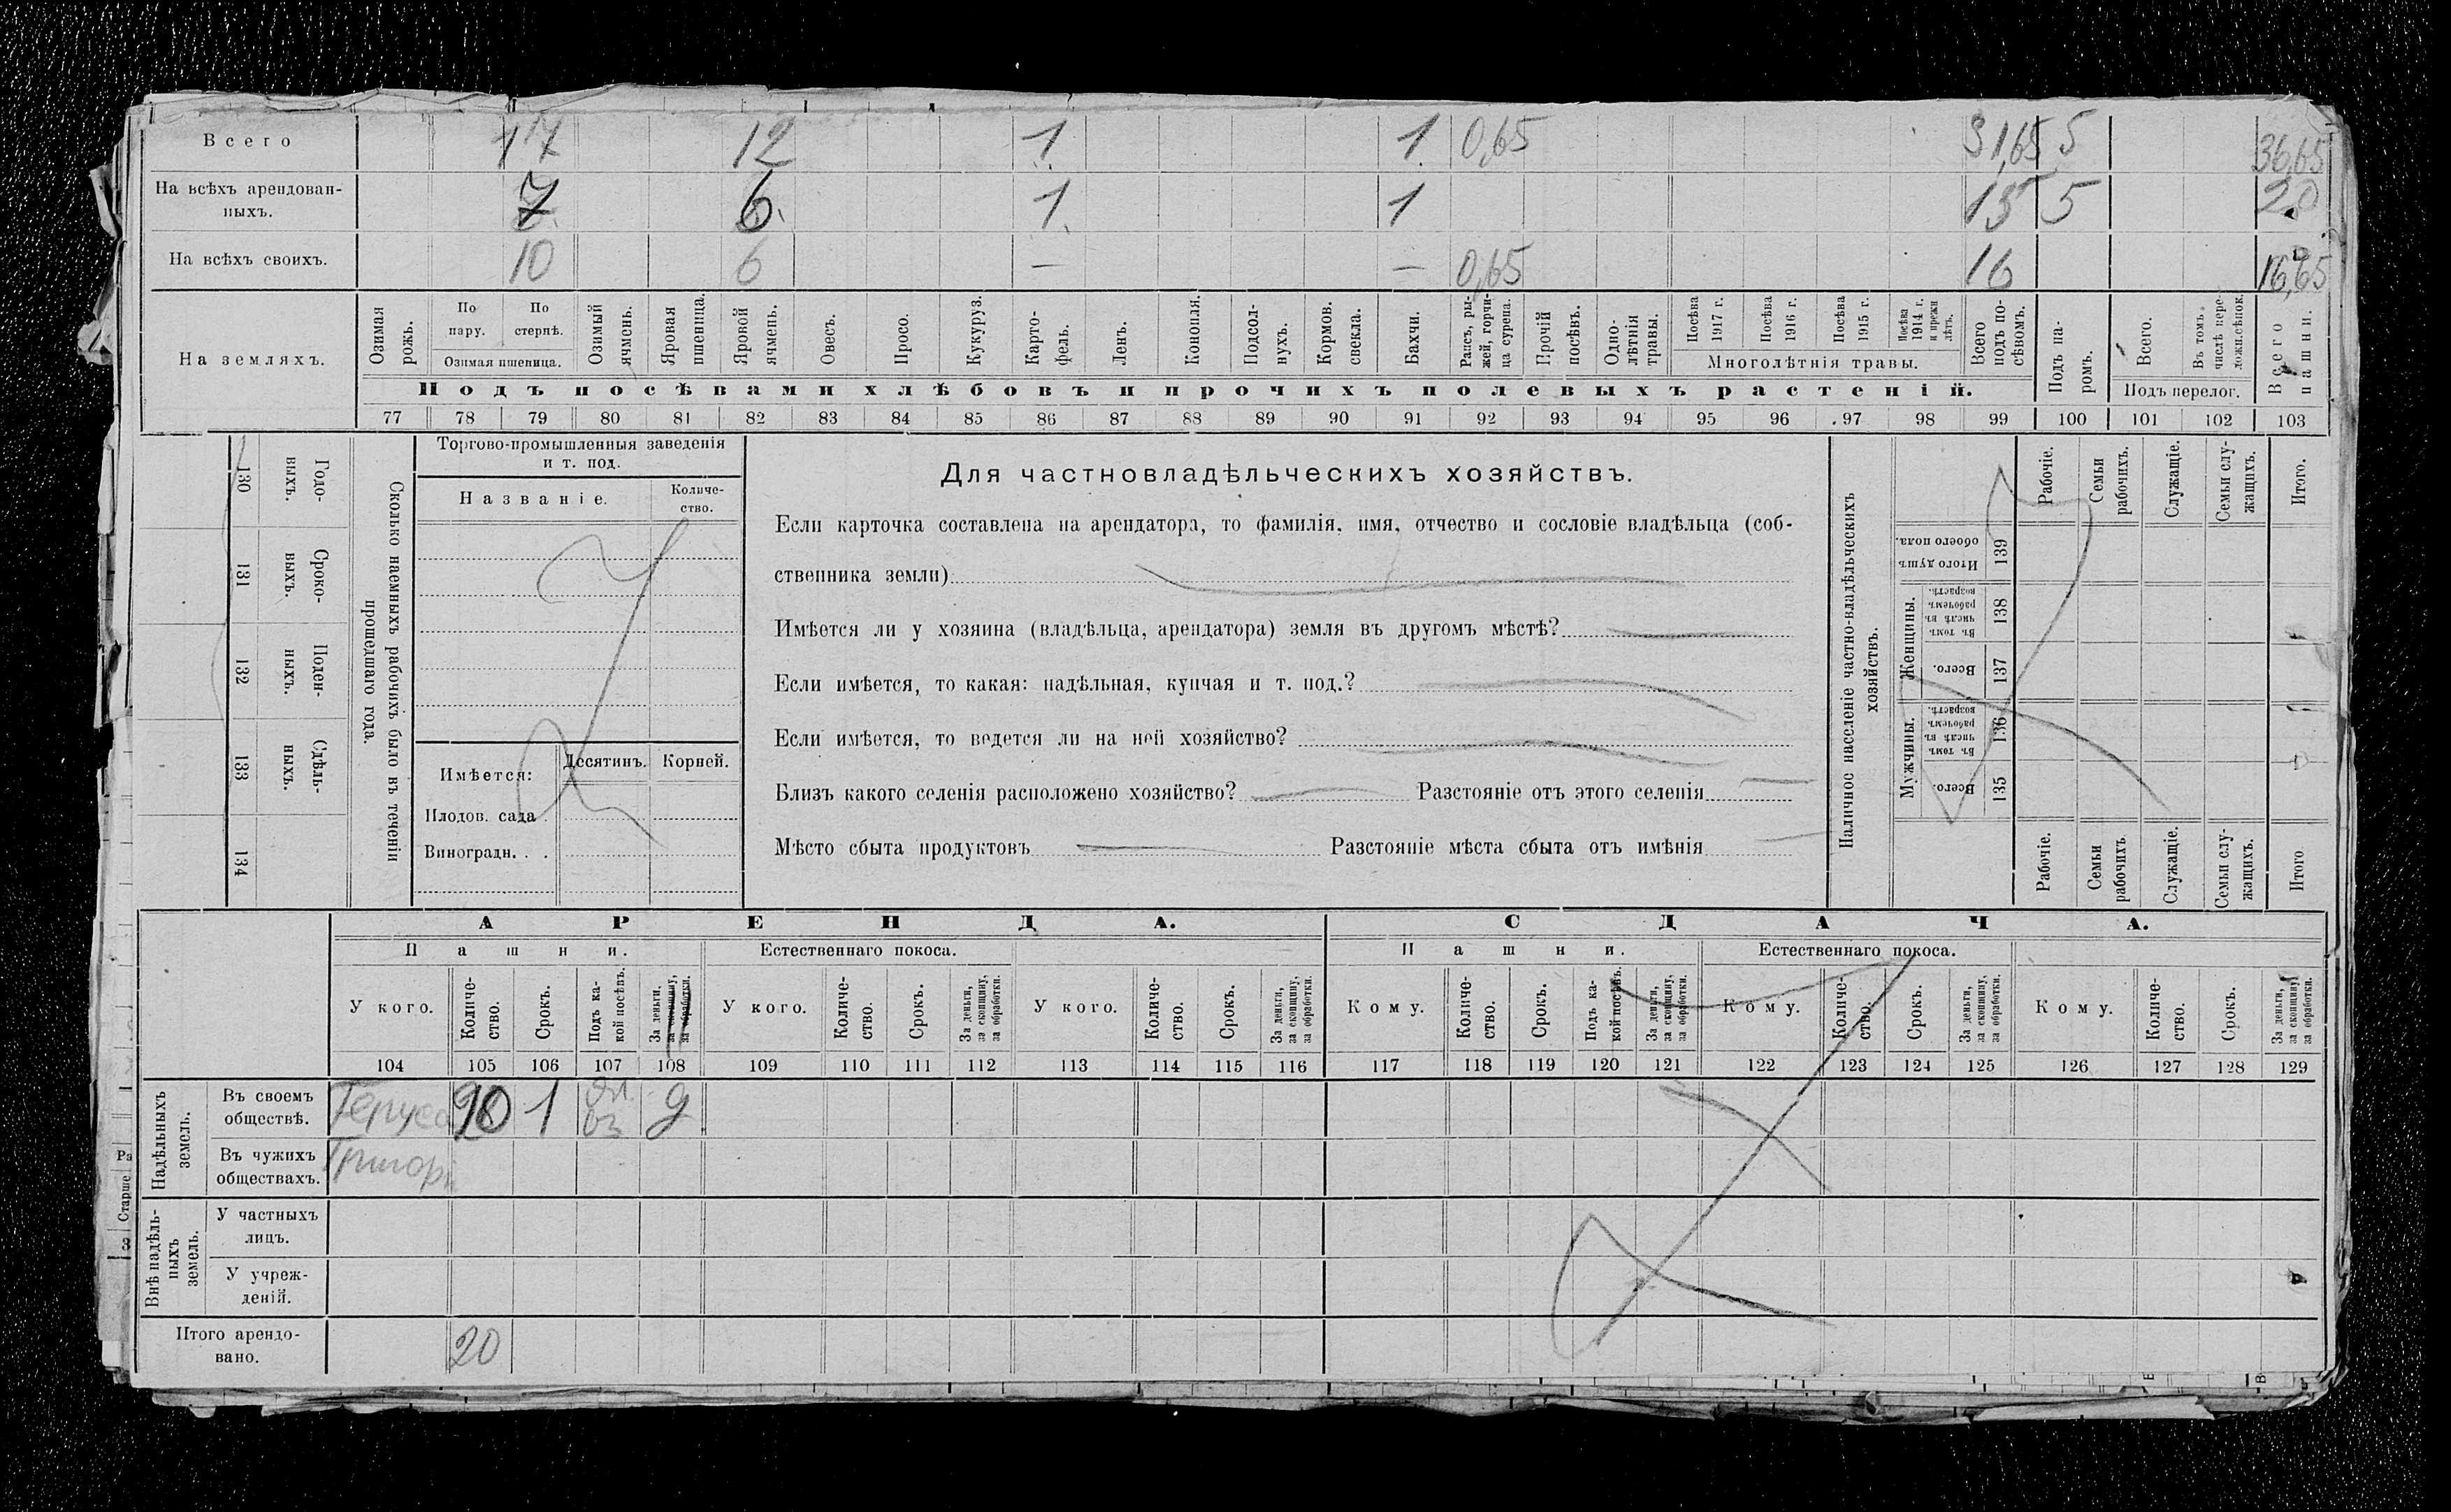 Всего 17 12 1 1 0,65 31,65 5 36,65
На всѣхъ арендован-
ныхъ. 7 6. 1. 1 15 5 20
На всѣхъ своихъ. 10 6 — — 0,65 16 16,65
На земляхъ.
Озимая рожь.
По пару.
По стернѣ.
Озимая пшеница.
Озимый ячмень.
Яровая пшеница.
Яровой ячмень.
Овесъ.
Просо.
Кукуруз.
Карто-
фель.
Ленъ.
Конопля.
Подсол-
нухъ.
Кормов. свекла.
Бахчи.
Рапсъ, ры-
жей, горчи-
ца сурепа.
Прочій посѣвъ.
Одно-
лѣтнія травы.
Посѣва 1917 г.
Посѣва 1916 г.
Посѣва 1915 г.
Посѣва 1914 г. и прежн лѣтъ.
Многолѣтнія травы.
Всего подъ по-
сѣвомъ.
Подъ па-
ромъ.
Всего.
Въ томъ числѣ пере-
ложн.сѣнок.
Подъ перелог.
Всего пашни.
Подъ посѣвами хлѣбовъ и прочихъ полевыхъ растеній.
77 78 79 80 81 82 83 84 85 86 87 88 89 90 91 92 93 94 95 96 97 98 99 100 101 102 103
130 Годо-
выхъ.
131 Сроко-
выхъ.
132 Поден-
ныхъ.
133 Сдѣль-
ныхъ.
134
Сколько наемныхъ рабочихъ было въ теченіи
прошедшаго года.
Торгово-промышленныя заведенія
и т. под.
Названіе.
Количе-
ство.
Имѣется: Десятинъ. Корней.
Плодов. сада .
Виноградн. . .
Для частновладѣльческихъ хозяйствъ.
Если карточка составлена на арендатора, то фамилія, имя, отчество и сословіе владѣльца (соб-
ственника земли)
Имѣется ли у хозяина (владѣльца, арендатора) земля въ другомъ мѣстѣ?
Если имѣется, то какая: надѣльная, купчая и т. под.?
Если имѣется, то ведется ли на ней хозяйство?
Близъ какого селенія расположено хозяйство? Разстояніе отъ этого селенія
Мѣсто сбыта продуктовъ Разстояніе мѣста сбыта отъ имѣнія
Наличное населеніе частно-владѣльческихъ
хозяйствъ.
Рабочіе.
Семьи рабочихъ.
Служащіе.
Семьи слу-
жащихъ.
Итого.
Итого душъ обоего пола. 139
Женщины.
Въ томъ числѣ въ рабочемъ возрастѣ. 138
Всего. 137
Мужчины.
Въ томъ числѣ въ рабочемъ возрастѣ. 136
Всего. 135
Рабочіе.
Семьи рабочихъ
Служащіе.
Семьи слу-
жащихъ.
Итого
АРЕНДА. СДАЧА.
Пашни. Естественнаго покоса. Пашни. Естественнаго покоса.
У кого.
Количе-
ство.
Срокъ.
Подъ ка-
кой посѣвъ.
За деньги, за скопщину, за обработки.
У кого.
Количе-
ство.
Срокъ.
За деньги, за скопщину, за обработки.
У кого.
Количе-
ство.
Срокъ.
За деньги, за скопщину, за обработки.
Кому.
Количе-
ство.
Срокъ.
Подъ ка-
кой посѣвъ.
За деньги, за скопщину, за обработки.
Кому.
Количе-
ство.
Срокъ.
За деньги, за скопщину, за обработки.
Кому.
Количе-
ство.
Срокъ.
За деньги, за скопщину, за обработки.
104 105 106 107 108 109 110 111 112 113 114 115 116 117 118 119 120 121 122 123 124 125 126 127 128 129
Надѣльныхъ земель.
Въ своемъ
обществѣ. 1 оз д
Въ чужихъ
обществахъ.
Внѣ надѣль-
ныхъ земель.
У частныхъ
лицъ.
У учреж-
деній.
Итого арендо-
вано. 20
Ра
Старше